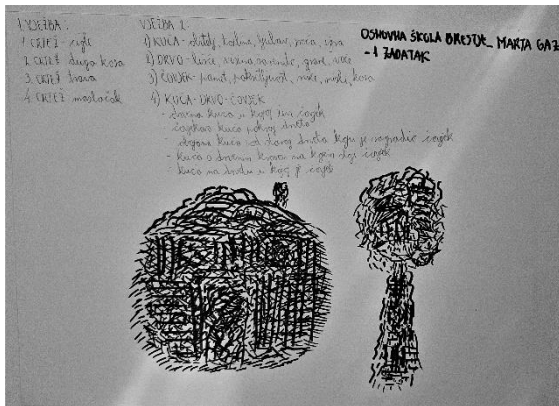 1. VJEŽBA:
1. CRTEŽ - cigle
2. CRTEŽ duga kosa
3. CRTEŽ trava
4. CRTEŽ maslačak
VJEŽBA 2.
1) KUĆA - obitelj, toplina, ljubav, sreća
2) DRVO - lišće, grane, voće
3) ČOVJEK - pamet, kosa
4) KUĆA - DRVO - ČOVJEK
- drvena kuća u kojoj živi čovjek
- čovjekova kuća pokraj drveta
- kuća od drveta koju je sagradio čovjek
- kuća s drvenim na kojem čovjek
- kuća na drvetu u kojoj je čovjek
OSNOVNA ŠKOLA BRESTJE_ MARTA GAZ
- 1 ZADATAK